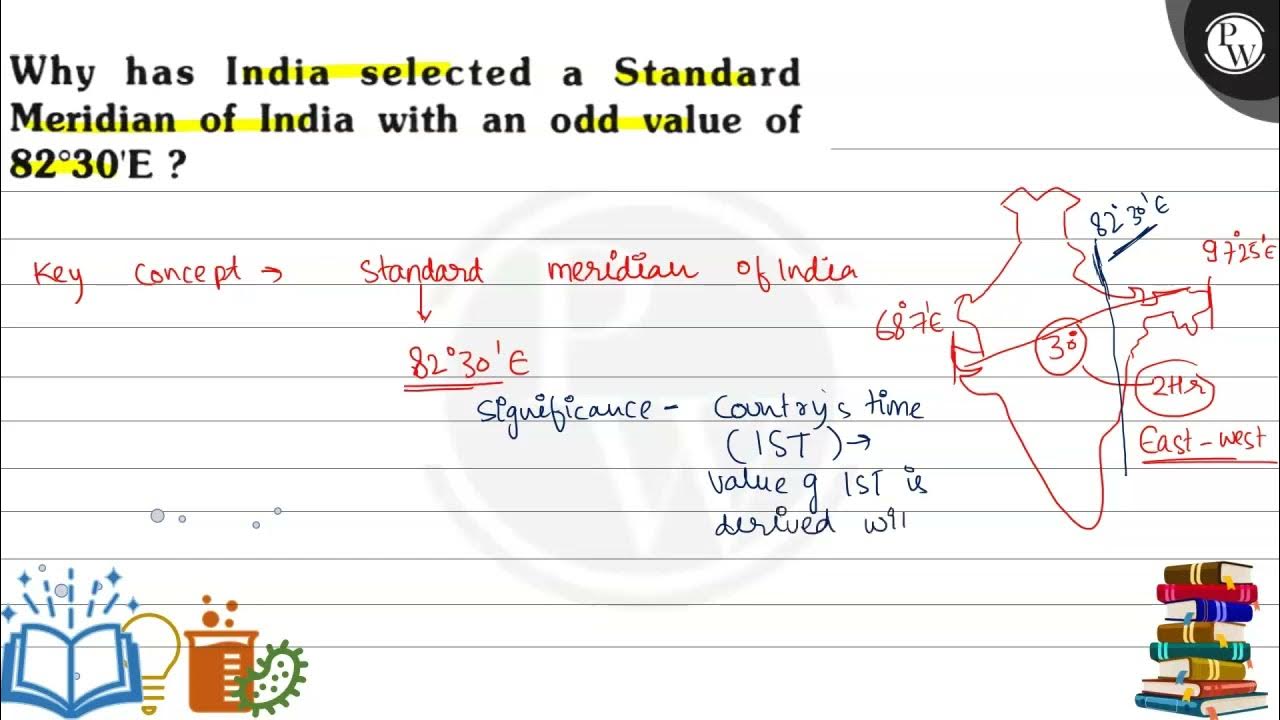 Why has India selected a Standard
Meridian of India with an odd value of
82°30'E ?
PW
Key concept → Standard meridian of India
82°30'E
Significance - Country's time
(IST) →
value g IST is
derived wil
82°30'E
97°25'E
68°7'E
30°
2Hr
East-west
PW